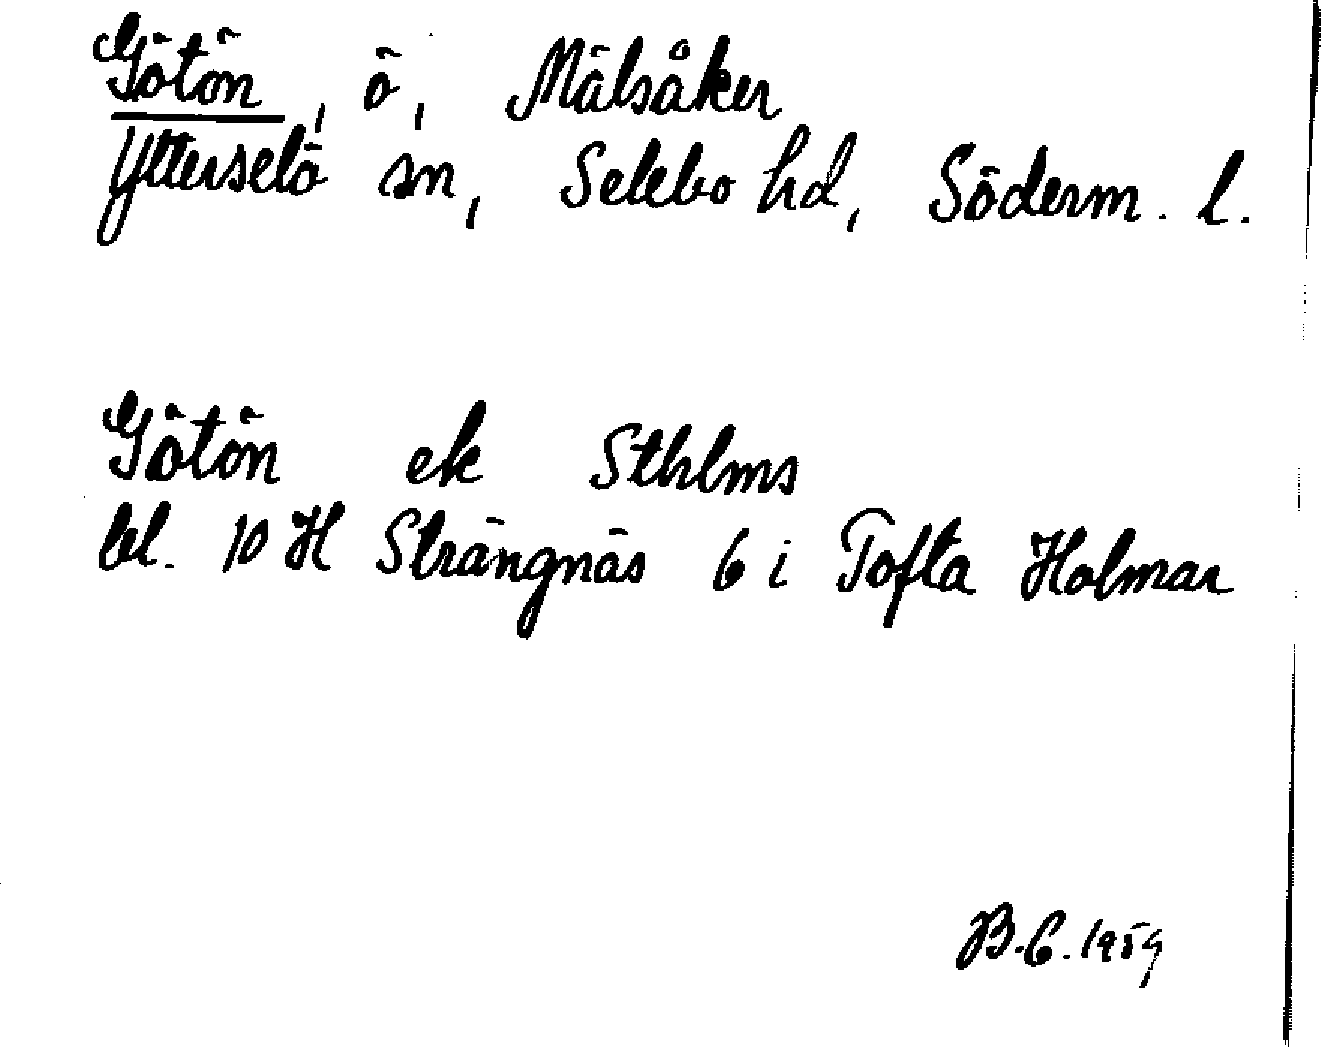 Götön, ö, Mälsåker
Ytterselö sn, Selebo hd, Söderm. l.
Götön ek Sthlms
bl. 10 H Strängnäs 6 i Tofta Holmar
B.C. 1959